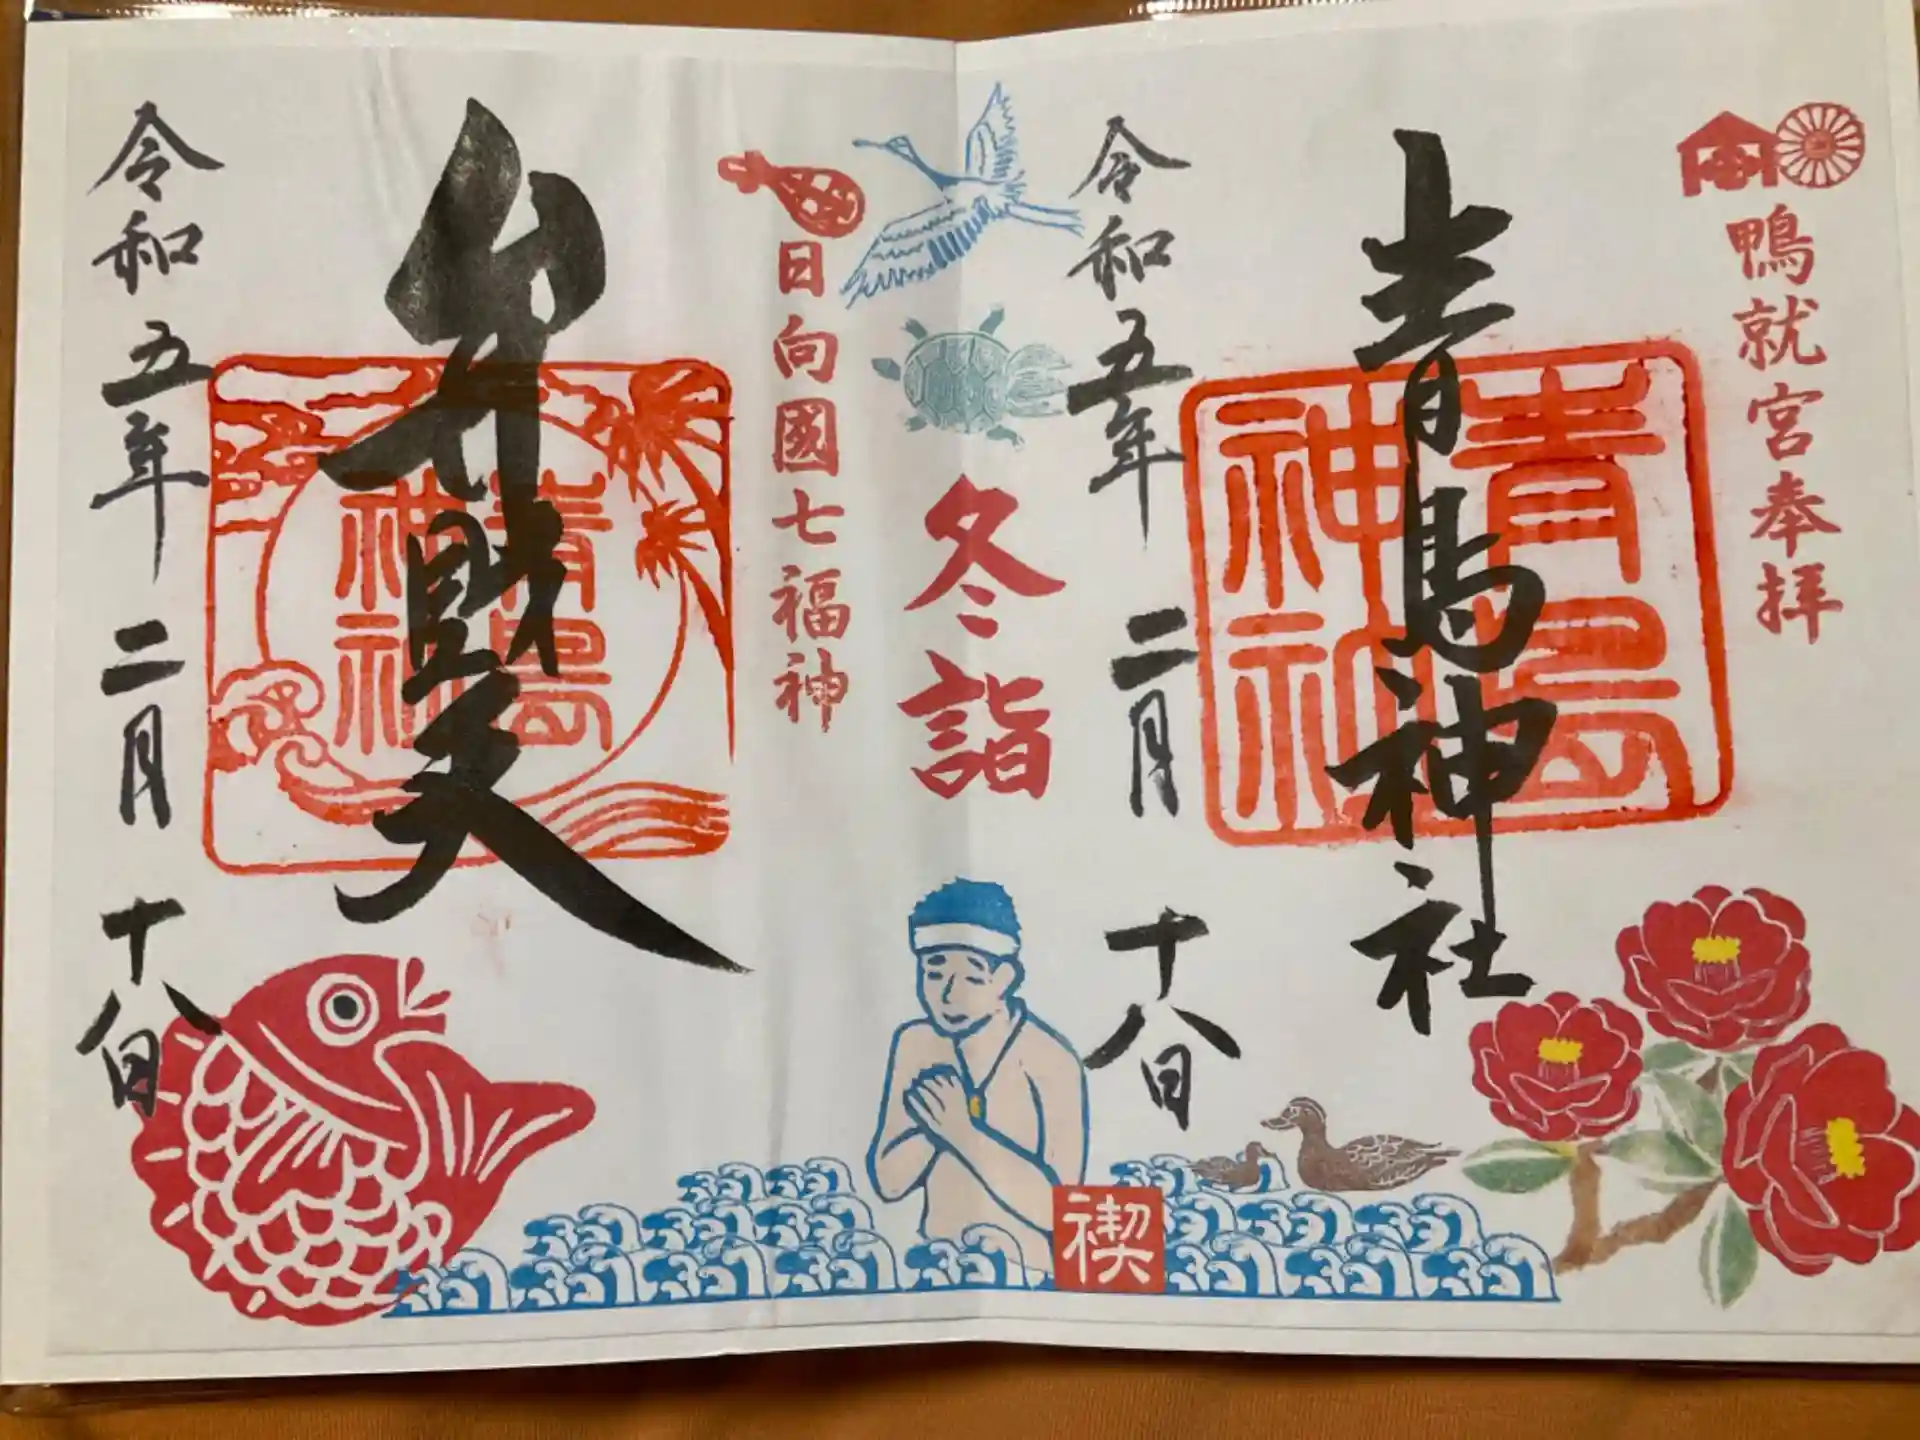 鴨就宮奉拝
青島神社
青島
神社
令和五年 二月 十八日
冬詣
禊
日向國七福神
弁財天
青島
神社
令和五年 二月 十八日